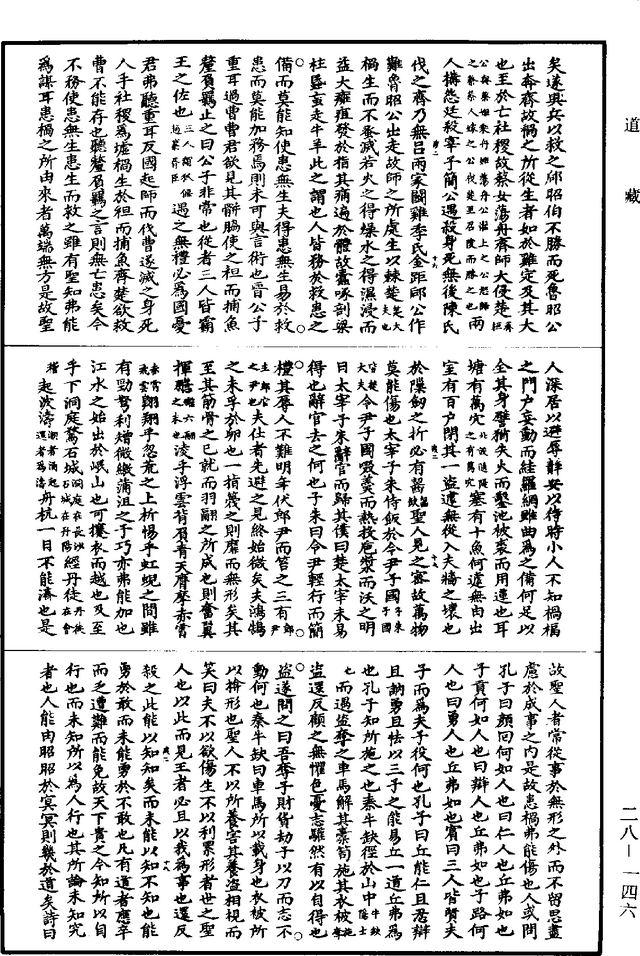 道藏
矣遂興兵以救之郈昭伯不勝而死魯昭公
出奔齊故禍之所從生者始於雞定及其大
也至於亡社稷故蔡女蕩舟齊師大侵楚齊桓
公與蔡姬乘舟姬蕩舟公怒歸之蔡蔡人嫁之公伐楚至召陵而勝之也兩
人搆怨廷殺宰予簡公遇殺身死無後陳氏
伐之齊乃無呂兩家鬭雞季氏金距郈公作
難魯昭公出走故師之所處生以棘楚楚大夫也
禍生而不蚤滅若火之得燥水之得濕浸而
益大癰疽發於指其痛遍於體故蠹啄剖梁
柱蟁䖟走牛羊此之謂也人皆務於救患之
備而莫能知使患無生夫得患無生易於救
患而莫能加務焉則未可與言術也晉公子
重耳過曹曹君欲見其骿脅使之袒而捕魚
釐負羈止之曰公子非常也從者三人皆霸
王之佐也三人狐偃趙衰胥臣遇之無禮必為國憂
君弗聽重耳反國起師而伐曹遂滅之身死
人手社稷為墟禍生於袒而捕魚齊楚欲救
曹不能存也聽釐負羈之言則無亡患矣今
不務使患無生患生而救之雖有聖知弗能
為謀耳患禍之所由來者萬端無方是故聖
人深居以避辱靜安以待時小人不知禍福
之門戶妄動而絓羅網雖曲為之備何足以
全其身譬猶失火而鑿池被裘而用箑也且
塘有萬穴塞有十魚何遽無由出
室有百戶閉其一盜遽無從入夫牆之壞也
於隙劍之折必有齧聖人見之密故萬物
莫能傷也太宰子朱侍飯於令尹子國
令尹子國啜羹而熱投巵漿而沃之明
日太宰子朱辭官而歸其僕曰楚太宰未易
得也辭官去之何也子朱曰令尹輕行而簡
禮其辱人不難明年伏郎尹而笞之三百
夫仕者先避之見終始微矣夫鴻鵠
之未孚於卵也一指篾之則靡而無形矣其
至其筋骨之已就而羽翮之所成也則奮翼
揮䎐凌乎浮雲背負青天膺摩赤霄
翱翔乎忽荒之上析惕乎虹蜺之間雖
有勁弩利矰微繳蒲沮之子巧亦弗能加也
江水之始出於岷山也可攘衣而越也及至
乎下洞庭騖石城洞庭在長沙石城在丹陽經丹徒
起波濤舟杭一日不能濟也是
故聖人者常從事於無形之外而不留思盡
慮於成事之內是故患禍弗能傷也人或問
孔子曰顏回何如人也曰仁人也丘弗如也
子貢何如人也曰辯人也丘弗如也子路何
人也曰勇人也丘弗如也賓曰三人皆賢夫
子而為夫子役何也孔子曰丘能仁且忍辯
且訥勇且怯以三子之能易丘一道丘弗為
也孔子知所施之也秦牛缺徑於山中牛缺隱士
也而遇盜奪之車馬解其橐笥施其衣被
盜還反顧之無懼色憂志驩然有以自得也
盜遂問之曰吾奪子財貨劫子以刀而志不
動何也秦牛缺曰車馬所以載身也衣被所
以揜形也聖人不以所養害其養盜相視而
笑曰夫不以欲傷生不以利累形者世之聖
人也以此而見王者必且以我為事也還反
殺之此能以知知矣而未能以知不知也能
勇於敢而未能勇於不敢也凡有道者應卒
而不乏遭難而能免故天下貴之今知所以自
行也而未知所以為人行也其所論未知究
者也人能由昭昭於冥冥則幾於道矣詩曰
二八—一四六